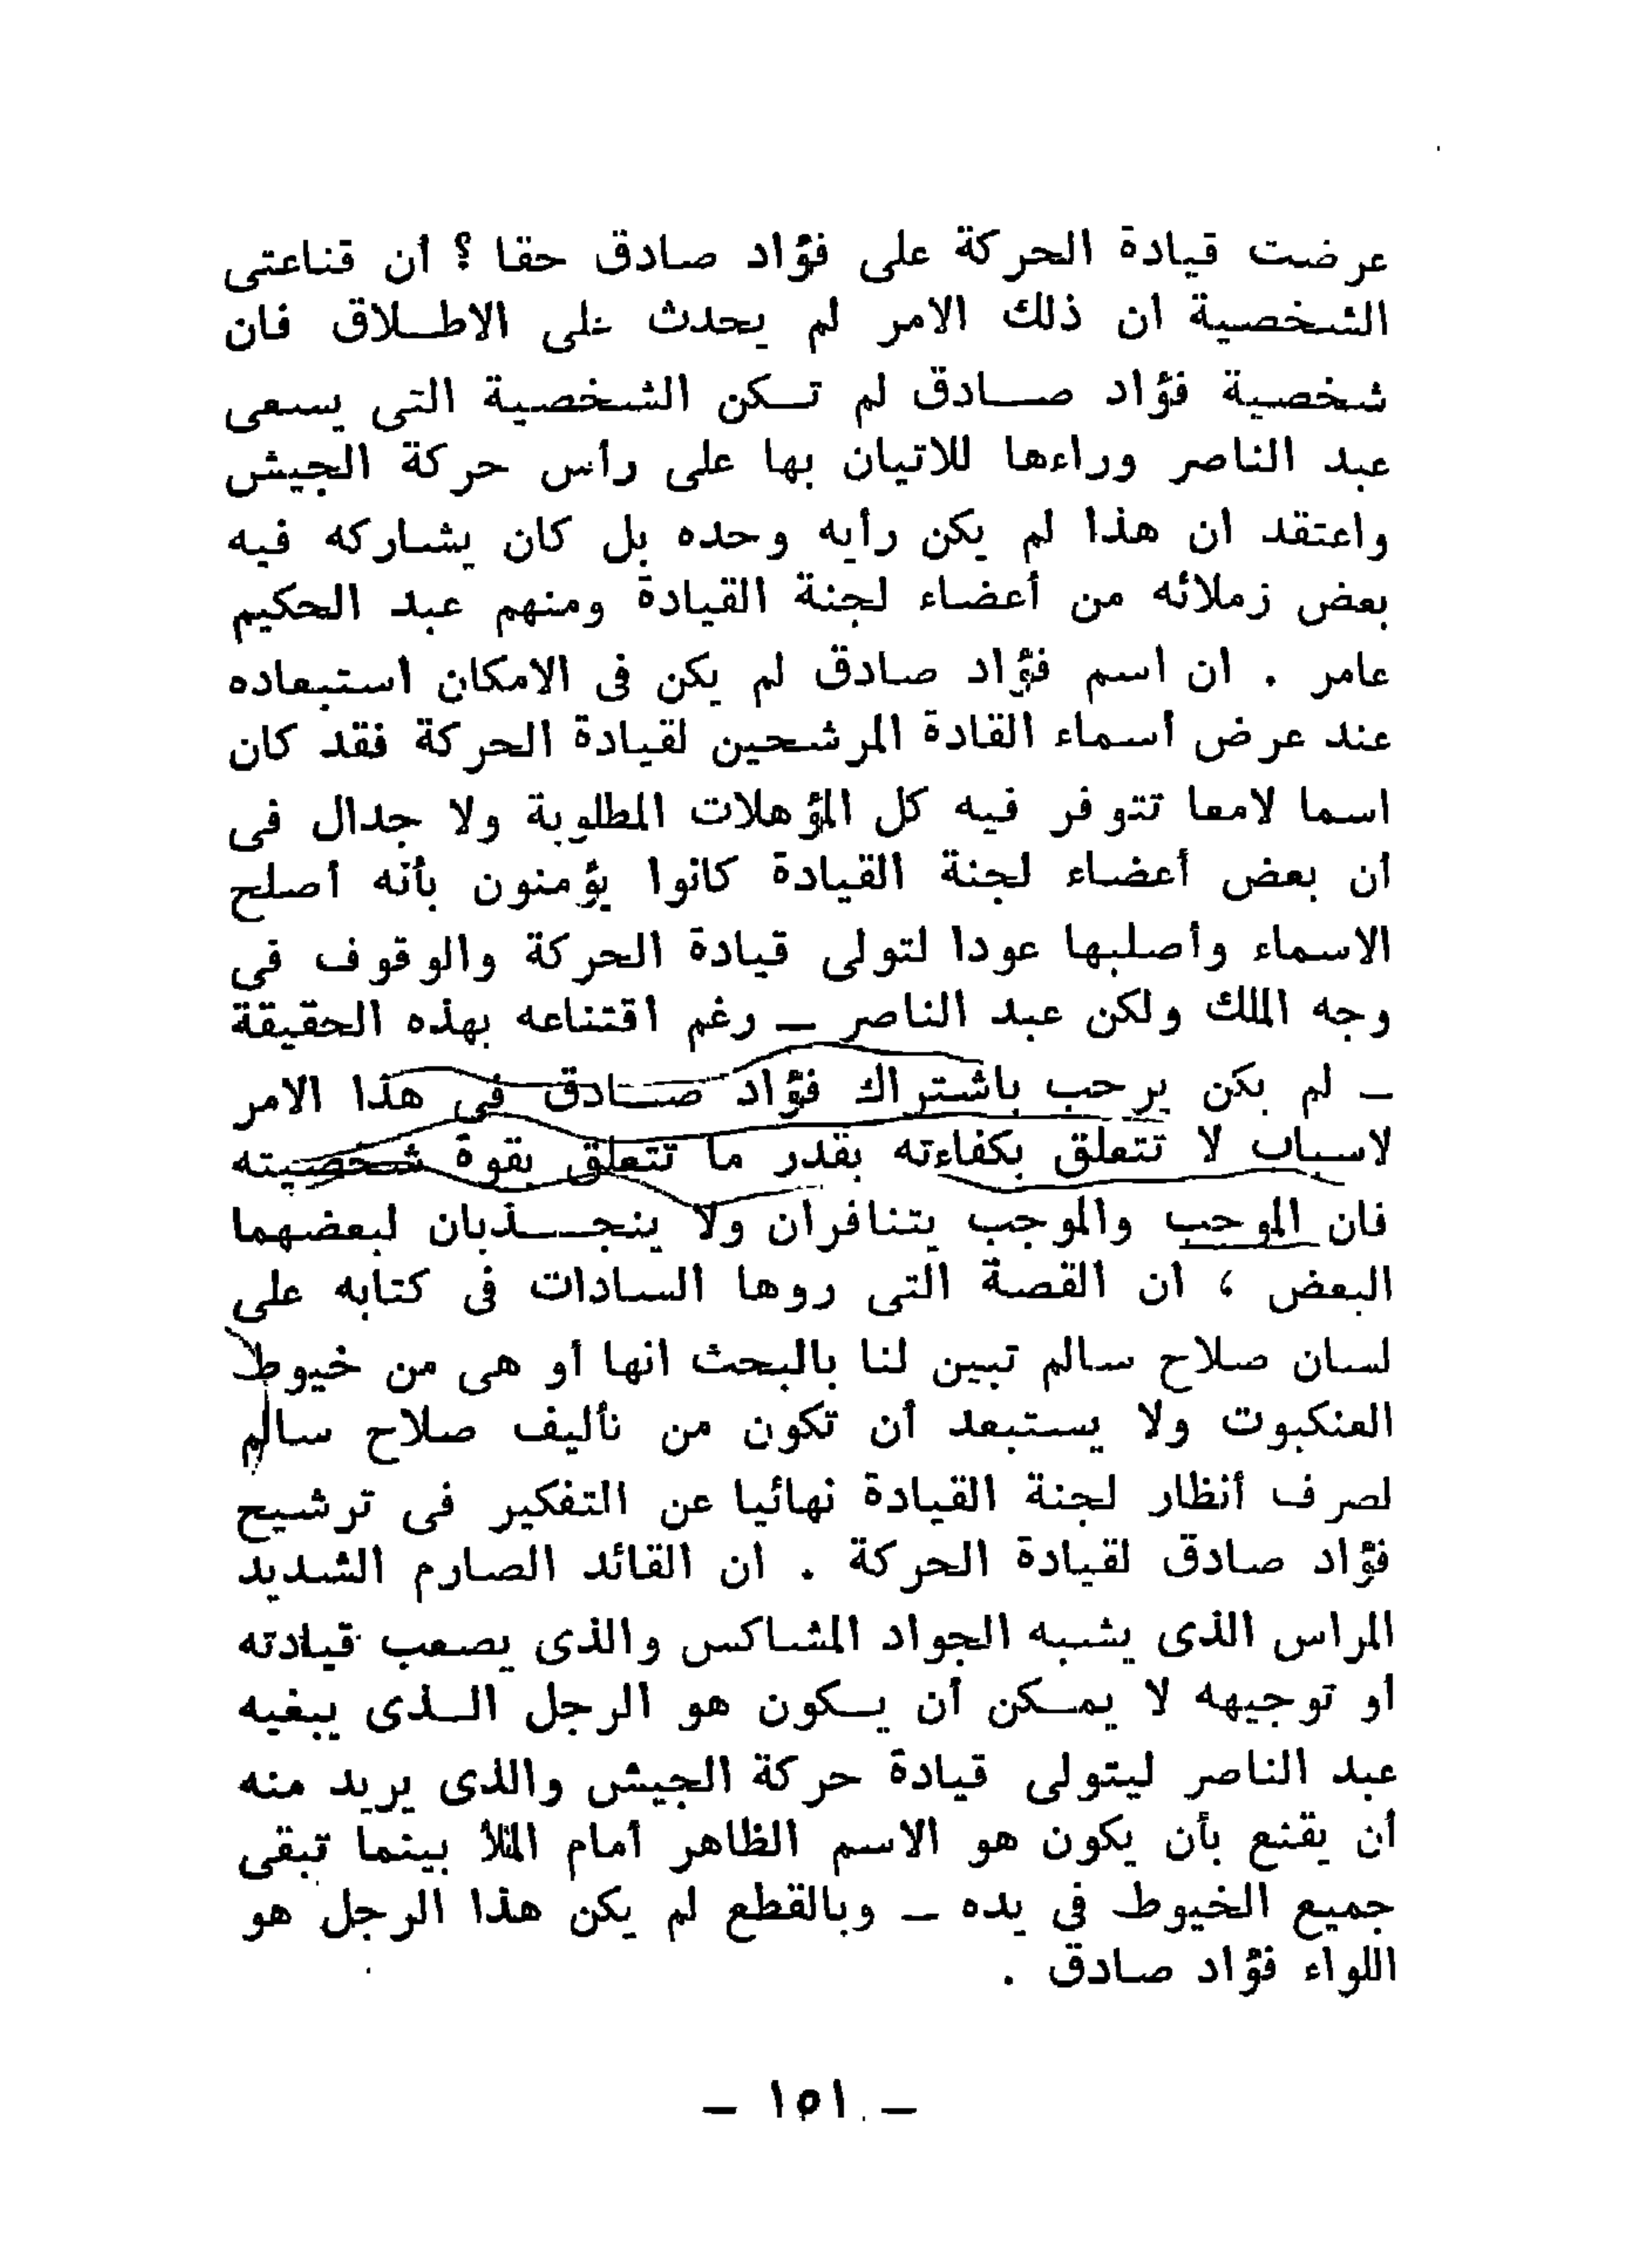 عرضت قيادة الحركة على فؤاد صادق حقا ؟ أن قناعتى
الشخصية ان ذلك الامر لم يحدث على الاطلاق فان
شخصية فؤاد صادق لم تكن الشخصية التى يسعى
عبد الناصر وراءها للاتيان بها على رأس حركة الجيش
واعتقد ان هذا لم يكن رأيه وحده بل كان يشاركه فيه
بعض زملائه من أعضاء لجنة القيادة ومنهم عبد الحكيم
عامر . ان اسم فؤاد صادق لم يكن فى الامكان استبعاده
عند عرض أسماء القادة المرشحين لقيادة الحركة فقد كان
اسما لامعا تتوفر فيه كل المؤهلات المطلوبة ولا جدال فى
أن بعض أعضاء لجنة القيادة كانوا يؤمنون بأنه أصلح
الاسماء وأصلبها عودا لتولى قيادة الحركة والوقوف فى
وجه الملك ولكن عبد الناصر — رغم اقتناعه بهذه الحقيقة
— لم يكن يرحب باشتراك فؤاد صادق فى هذا الامر
لاسباب لا تتعلق بكفاءته بقدر ما تتعلق بقوة شخصيته
فان الموجب والموجب يتنافران ولا ينجذبان لبعضهما
البعض ، ان القصة التى روها السادات فى كتابه على
لسان صلاح سالم تبين لنا بالبحث انها أو هى من خيوط
العنكبوت ولا يستبعد أن تكون من تأليف صلاح سالم
لصرف أنظار لجنة القيادة نهائيا عن التفكير فى ترشيح
فؤاد صادق لقيادة الحركة . ان القائد الصارم الشديد
المراس الذى يشبه الجواد المشاكس والذى يصعب قيادته
أو توجيهه لا يمكن أن يكون هو الرجل الذى يبغيه
عبد الناصر ليتولى قيادة حركة الجيش والذى يريد منه
أن يقنع بأن يكون هو الاسم الظاهر أمام الملأ بينما تبقى
جميع الخيوط فى يده — وبالقطع لم يكن هذا الرجل هو
اللواء فؤاد صادق .
— ١٥١ —